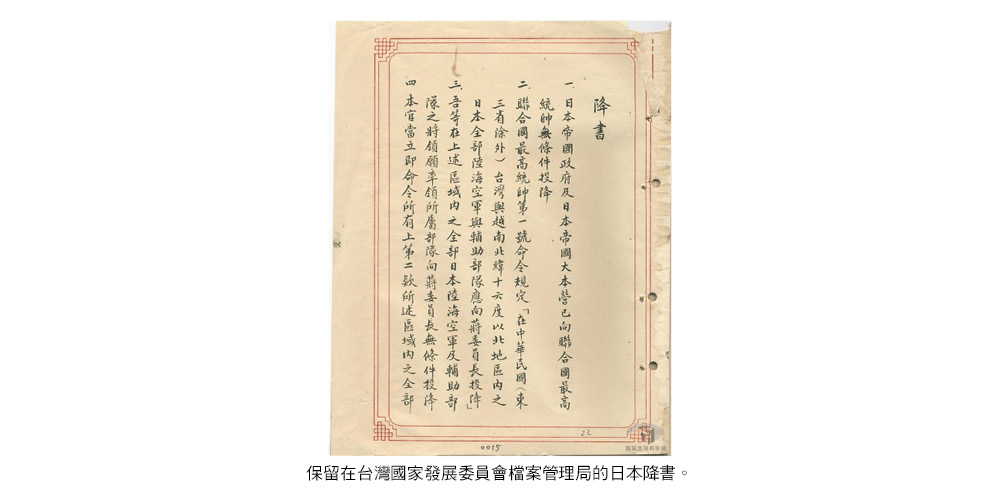 降書
一、日本帝國政府及日本帝國大本營已向聯合國最高
統帥無條件投降
二、聯合國最高統帥第一號命令規定「在中華民國（東
三省除外）台灣與越南北緯十六度以北地區內之
日本全部陸海空軍與輔助部隊應向蔣委員長投降」
三、吾等在上述區域內之全部日本陸海空軍及輔助部
隊之將領願率領所屬部隊向蔣委員長無條件投降
四本官當立即命令所有上第二款所述區域內之全部
22
0015
保留在台灣國家發展委員會檔案管理局的日本降書。